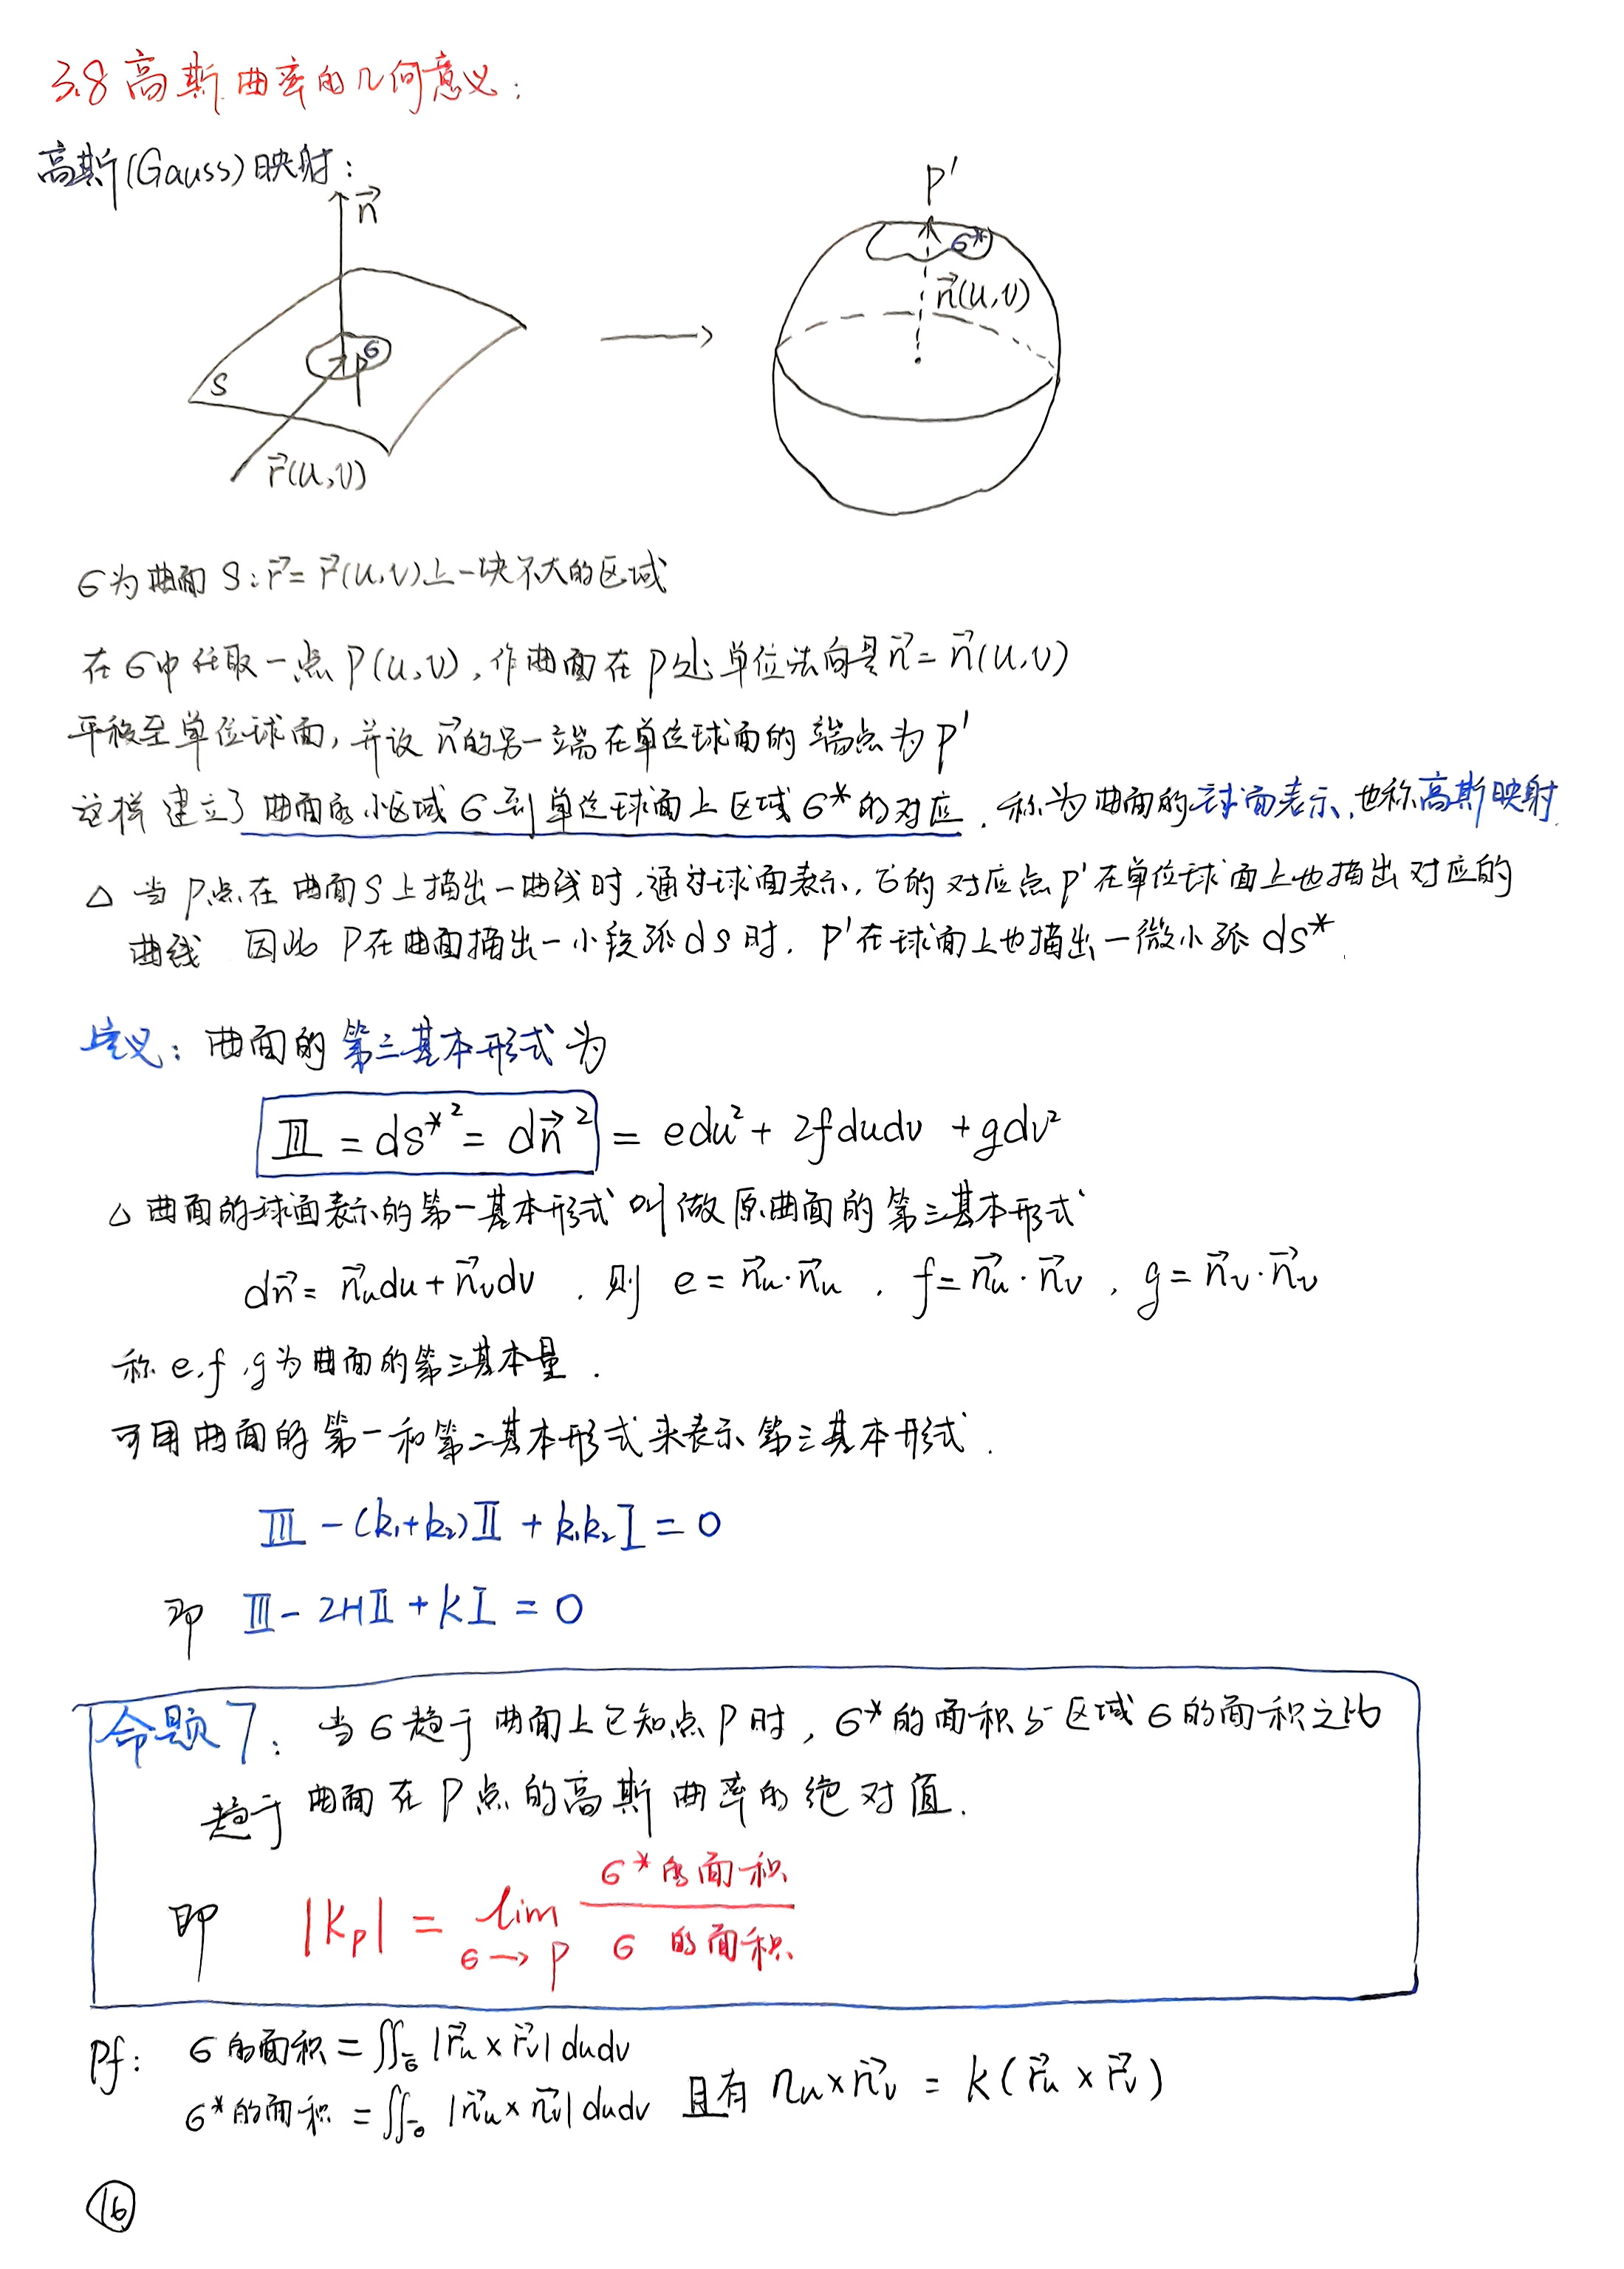 3.8 高斯曲率的几何意义:
高斯(Gauss)映射:
n⃗
σ
P
S
r⃗(u,v)
P'
σ*
n⃗(u,v)
σ为曲面 S: r⃗ = r⃗(u,v)上一块不大的区域
在σ中任取一点 P(u,v), 作曲面在P处单位法向量 n⃗ = n⃗(u,v)
平移至单位球面, 并设 n⃗的另一端在单位球面的端点为 P'
这样建立了曲面的小区域 σ 到单位球面上区域 σ* 的对应. 称为曲面的球面表示, 也称高斯映射.
△ 当 P点在曲面S上描出一曲线时, 通过球面表示, 它的对应点P'在单位球面上也描出对应的
曲线 因此 P在曲面描出一小段弧ds时. P'在球面上也描出一微小弧 ds*.
定义: 曲面的第三基本形式为
Ⅲ = ds*² = dn⃗² = edu² + 2fdudv + gdv²
△ 曲面的球面表示的第一基本形式叫做原曲面的第三基本形式
dn⃗ = n⃗ᵤdu + n⃗ᵥdv . 则 e = n⃗ᵤ·n⃗ᵤ . f = n⃗ᵤ·n⃗ᵥ , g = n⃗ᵥ·n⃗ᵥ
称 e,f,g为曲面的第三基本量.
可用曲面的第一和第二基本形式来表示第三基本形式.
Ⅲ - (k₁+k₂)Ⅱ + k₁k₂Ⅰ = 0
即 Ⅲ - 2HⅡ + KⅠ = 0
命题7: 当 σ 趋于曲面上已知点 P 时, σ* 的面积与区域 σ 的面积之比
趋于曲面在 P 点的高斯曲率的绝对值.
即 |K_P| = lim_{σ→P} σ*的面积 / σ 的面积
Pf: σ的面积 = ∬_σ̄ |r⃗ᵤ × r⃗ᵥ| dudv
σ*的面积 = ∬_σ̄ |n⃗ᵤ × n⃗ᵥ| dudv 且有 nᵤ × n⃗ᵥ = K(r⃗ᵤ × r⃗ᵥ)
16